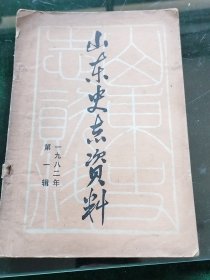 山东史志资料
一九八二年
第一辑